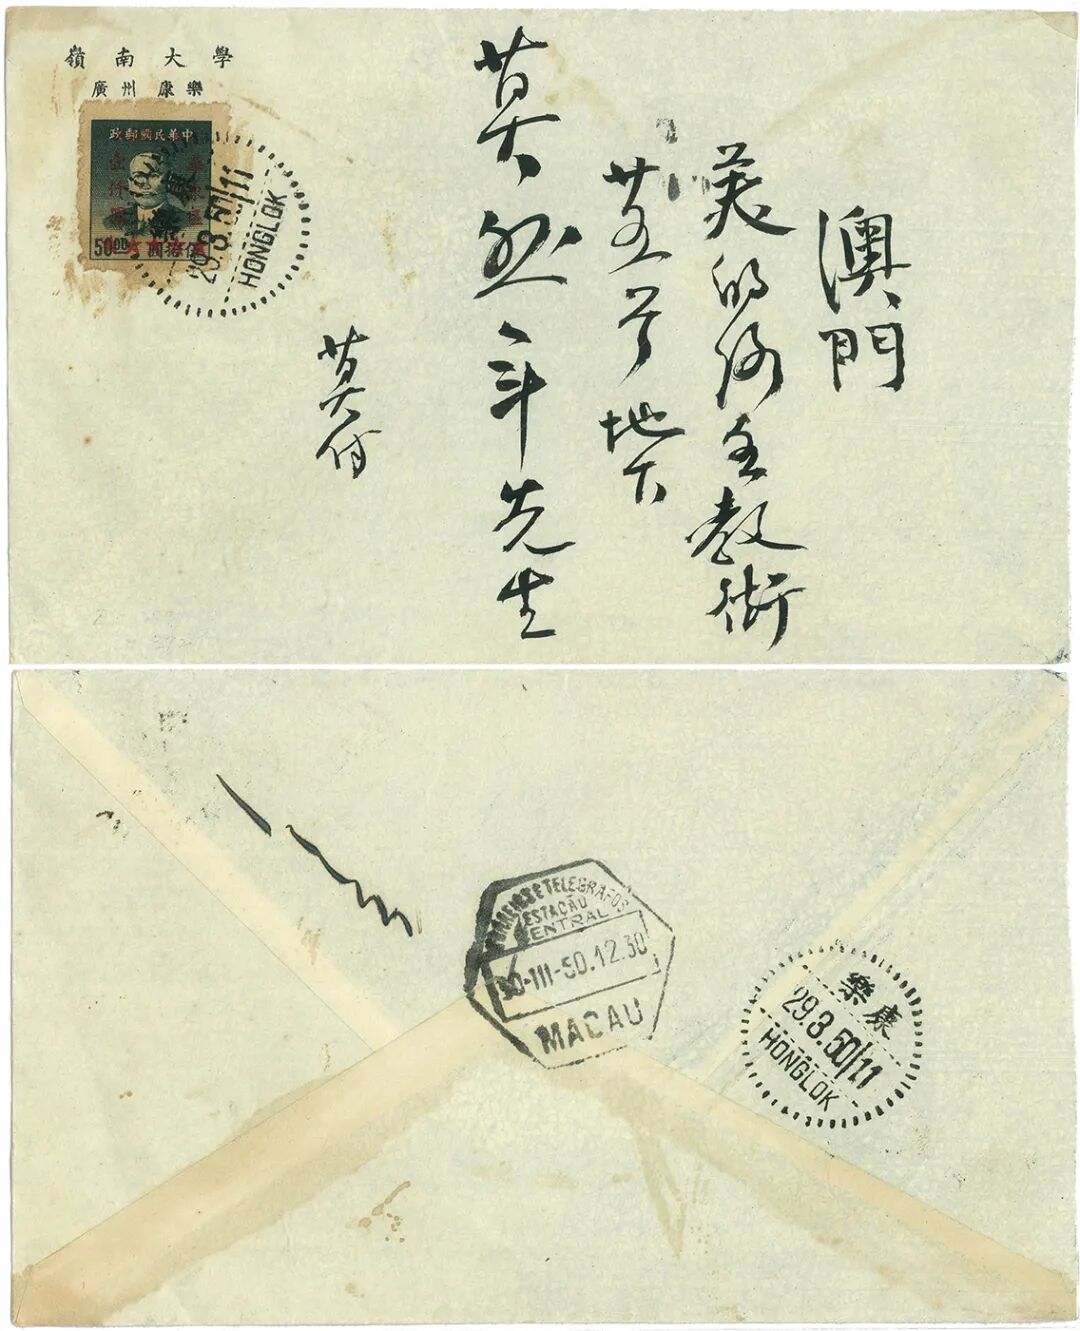 嶺南大學
廣州 康樂
中華民國郵政
50.00
康樂
29.3.50/11
HONGLOK
澳門
美的路主教街
廿五号地下
莫 年先生
莫付
CORREIOS E TELEGRAFOS
ESTAÇÃO
CENTRAL
30-III-50.12.30
MACAU
康樂
29.3.50/11
HONGLOK